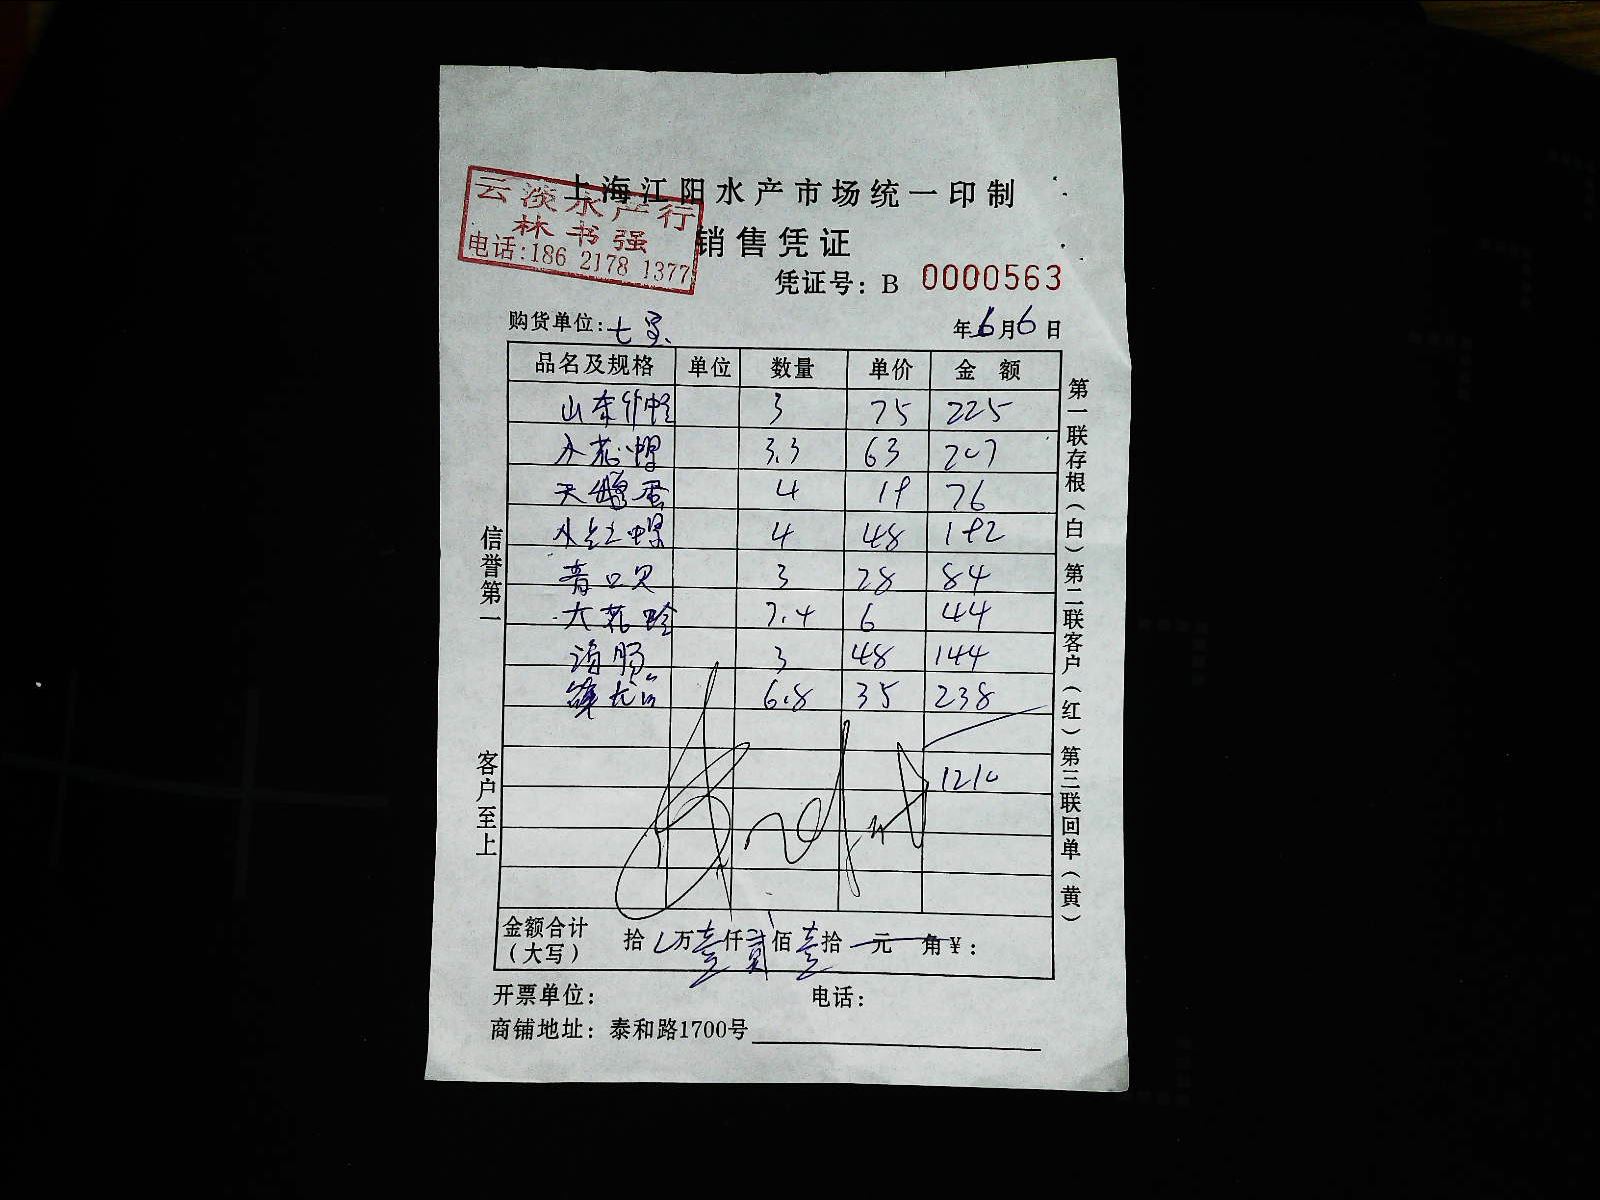 上海江阳水产市场统一印制
云淡水产行
林书强
电话:186 2178 1377
销售凭证
凭证号: B 0000563
购货单位:七宝 年6月6日
品名及规格 单位 数量 单价 金 额
山东竹蛏 3 75 225
3.3 63 207
天鹅蛋 4 19 76
4 48 192
青口贝 3 28 84
大花蛤 7.4 6 44
海肠 3 48 144
6.8 35 238
1210
金额合计
(大写) 拾 万壹仟贰佰壹拾 元 角¥:
开票单位: 电话:
商铺地址: 泰和路1700号
信誉第一 客户至上
第一联存根(白)第二联客户(红)第三联回单(黄)